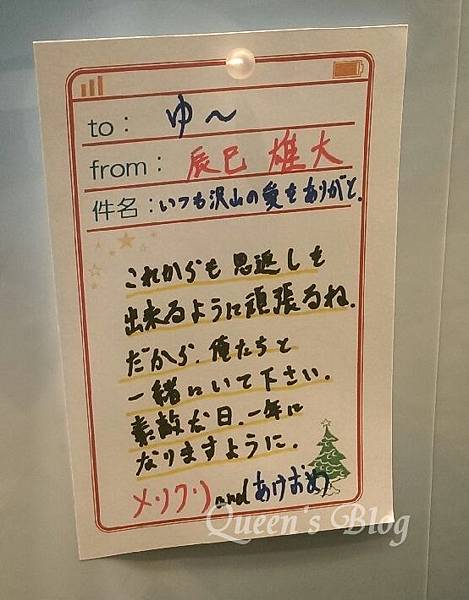 to: ゆ〜
from: 辰巳 雄大
件名:いつも沢山の愛をありがと.
これからも恩返しも
出来るように頑張るね.
だから.俺たちと
一緒にいて下さい.
素敵な日.一年に
なりますように.
メリクリandあけおめ
Queen's Blog